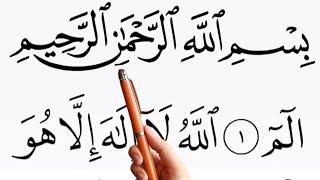 بِسْمِ ٱللَّهِ ٱلرَّحْمَٰنِ ٱلرَّحِيمِ
الٓمٓ ١ ٱللَّهُ لَآ إِلَٰهَ إِلَّا هُوَ